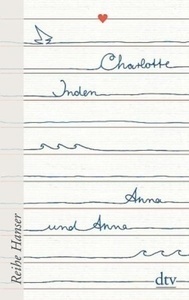 Charlotte
Inden
Anna
und Anna
Reihe Hanser
dtv